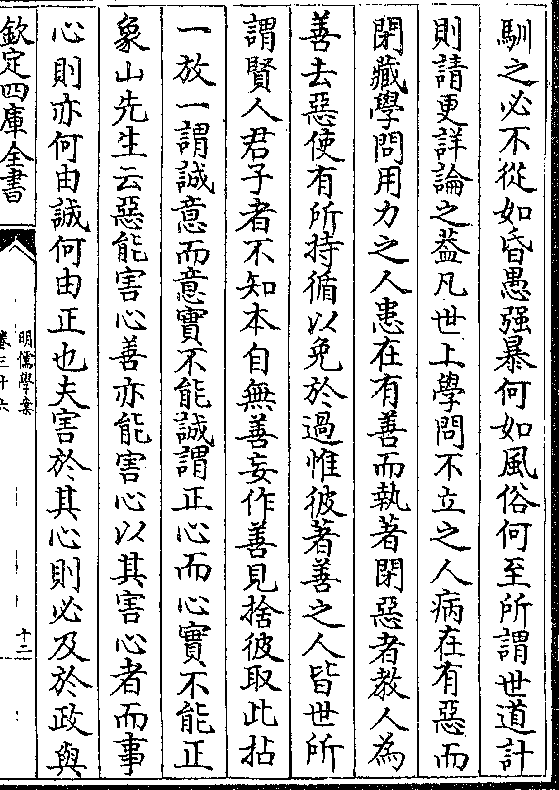 馴之必不從如昏愚强暴何如風俗何至所謂世道計
則請更詳論之葢凡世上學問不立之人病在有惡而
閉藏學問用力之人患在有善而執著閉惡者教人為
善去惡使有所持循以免於過惟彼著善之人皆世所
謂賢人君子者不知本自無善妄作善見捨彼取此拈
一放一謂誠意而意實不能誠謂正心而心實不能正
象山先生云惡能害心善亦能害心以其害心者而事
心則亦何由誠何由正也夫害於其心則必及於政與
欽定四庫全書
明儒學案
卷三十六
十二